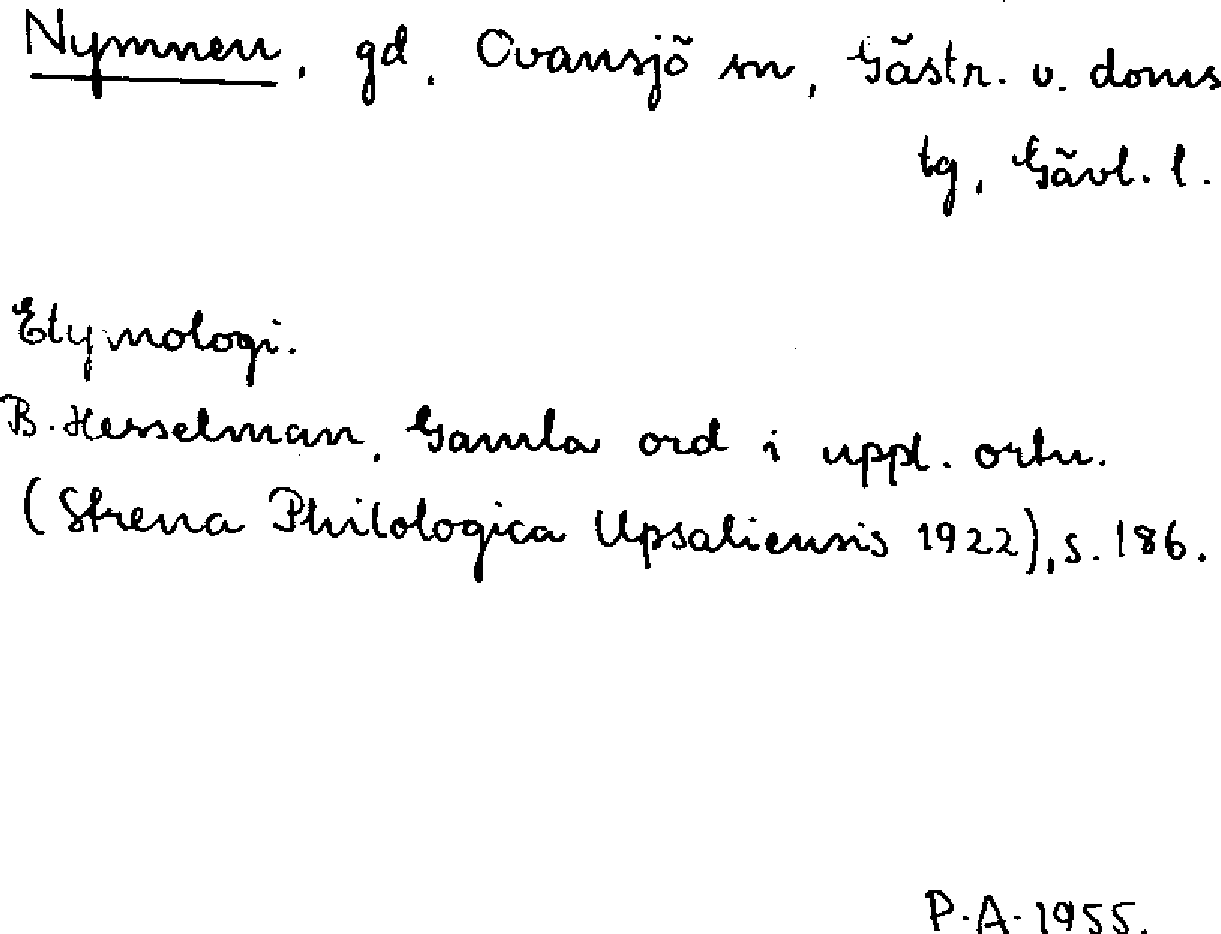 Nymnen, gd, Ovansjö sn, Gästr. v. doms
tg, Gävl. l.
Etymologi.
B. Hesselman, Gamla ord i uppl. ortn.
(Strena Philologica Upsaliensis 1922), s. 186.
P.A. 1955.